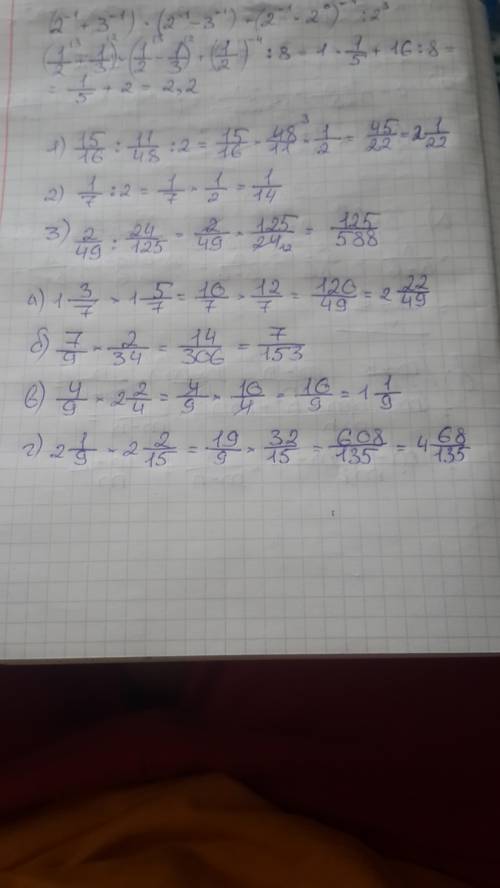 (2⁻¹ + 3⁻¹) · (2⁻¹ - 3⁻¹) + (2⁻¹ · 2⁰)⁻⁴ : 2³
(1/2 + 1/3) · (1/2 - 1/3) + (1/2)⁻⁴ : 8 = 1 · 1/5 + 16 : 8 =
= 1/5 + 2 = 2,2
1) 15/16 : 11/48 : 2 = 15/16 · 48³/11 · 1/2 = 45/22 = 2 1/22
2) 1/7 : 2 = 1/7 · 1/2 = 1/14
3) 2/49 : 24/125 = 2/49 · 125/24₁₂ = 125/588
а) 1 3/7 · 1 5/7 = 10/7 · 12/7 = 120/49 = 2 22/49
б) 7/9 · 2/34 = 14/306 = 7/153
в) 4/9 · 2 2/4 = 4/9 · 10/4 = 10/9 = 1 1/9
г) 2 1/9 · 2 2/15 = 19/9 · 32/15 = 608/135 = 4 68/135